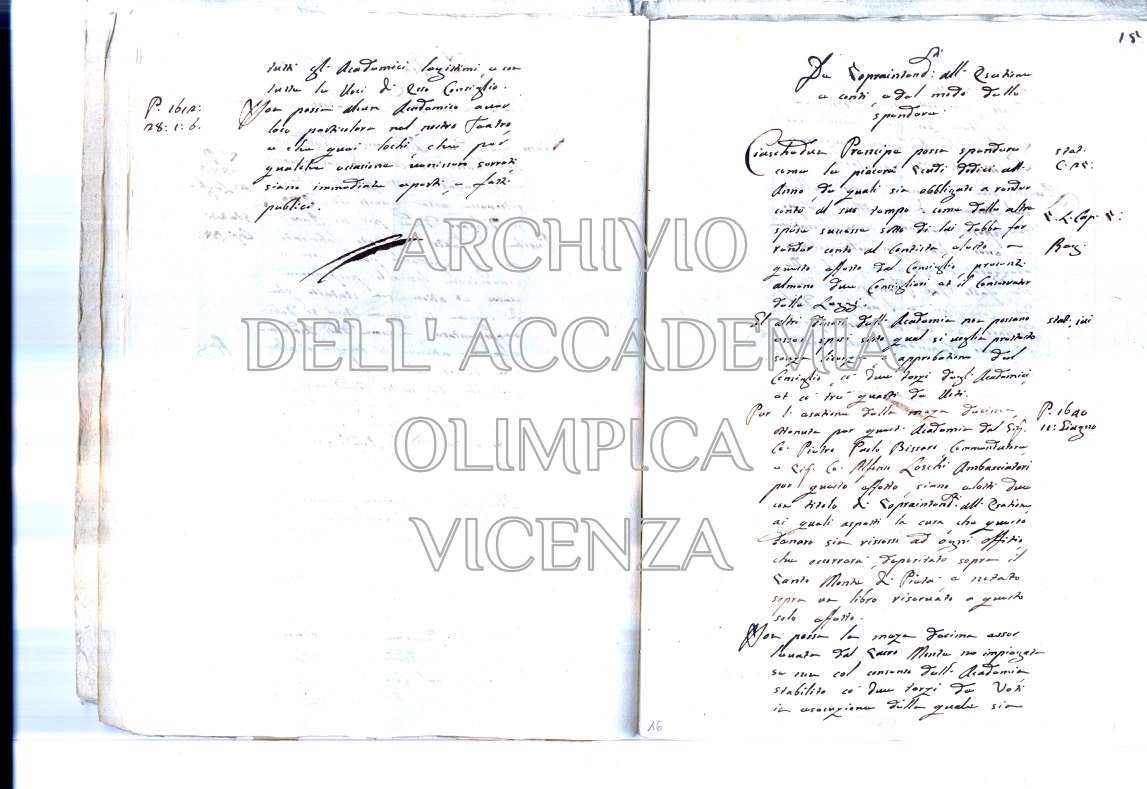 tutti gl. Academici legittimi, e con
tutte le Voci di Esso Consiglio.
P. 1612:
28: i: 6.
Non possa alcun Academico auer
loco particolare nel nostro Teatro,
e che quei lochi che per
qualche ocasione uenissero serrati
siano immediate aperti e fatti
publici.
15
De Sopraintend:ti all. Esatione
e conti, e del modo delle
spendere
Ciaschedun Prencipe possa spendere
stat:
come le piacerà Scudi dodici all.
Anno de quali sia obbligato a render
conto al suo tempo. come delle altre
spese successe sotto di lui debba far
render conto al Contista, eletto, a
questo effetto dal Consiglio, presenti
almeno due Consiglieri et il Conservator
delle Leggi.
Gl altri denari dell. Academia non possano
stat: iui
esser spesi sotto qual si voglia pretesto
senza licenza e approbatione del
Consiglio, cō due terzi degl. Academici,
et cō trè quarti de Voti.
Per l. esatione della meza decima,
P. 1640
11: Giugno
ottenuta per quest. Academia dal Sig.
Co. Pietro Paolo Bissaro Commendatore
e Sig. Co. Alfonso Loschi Ambasciatori
per questo effetto, siano eletti due
con titolo di Sopraintend.ti all. Esatione
ai quali aspetti la cura che questo
denaro sia riscosso ad ogni offitio
che occorrerà, depositato sopra il
Santo Monte di Pietà e notato
sopra un libro riseruato a questo
solo effetto.
Non possa la meza decima esser
leuata dal Sacro Monte ne impiegata
se non col consenso dell. Academia
stabilito cō due terzi de Voti
in esecuzione della quale sia
16
ARCHIVIO
DELL'ACCADEMIA
OLIMPICA
VICENZA